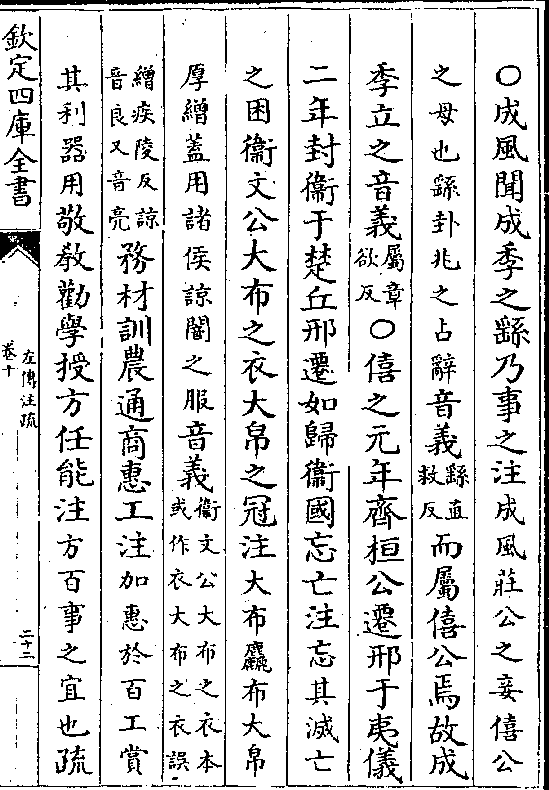 ○成風聞成季之繇乃事之注成風莊公之妾僖公
之母也繇卦兆之占辭音義繇直救反而屬僖公焉故成
季立之音義屬章欲反○僖之元年齊桓公遷邢于夷儀
二年封衞于楚丘邢遷如歸衞國忘亡注忘其滅亡
之困衞文公大布之衣大帛之冠注大布麤布大帛
厚繒蓋用諸侯諒闇之服音義衞文公大布之衣本或作衣大布之衣誤
繒疾陵反諒音良又音亮務材訓農通商惠工注加惠於百工賞
其利器用敬敎勸學授方任能注方百事之宜也疏
欽定四庫全書
左傳注疏
卷十
二十二